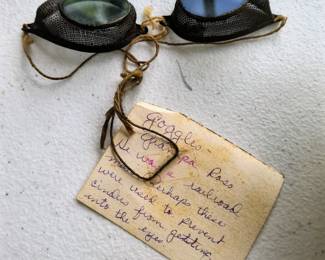 Goggles
Grampa Ross
He was a railroad
man. Perhaps these
were used to prevent
cinders from getting
into the eyes